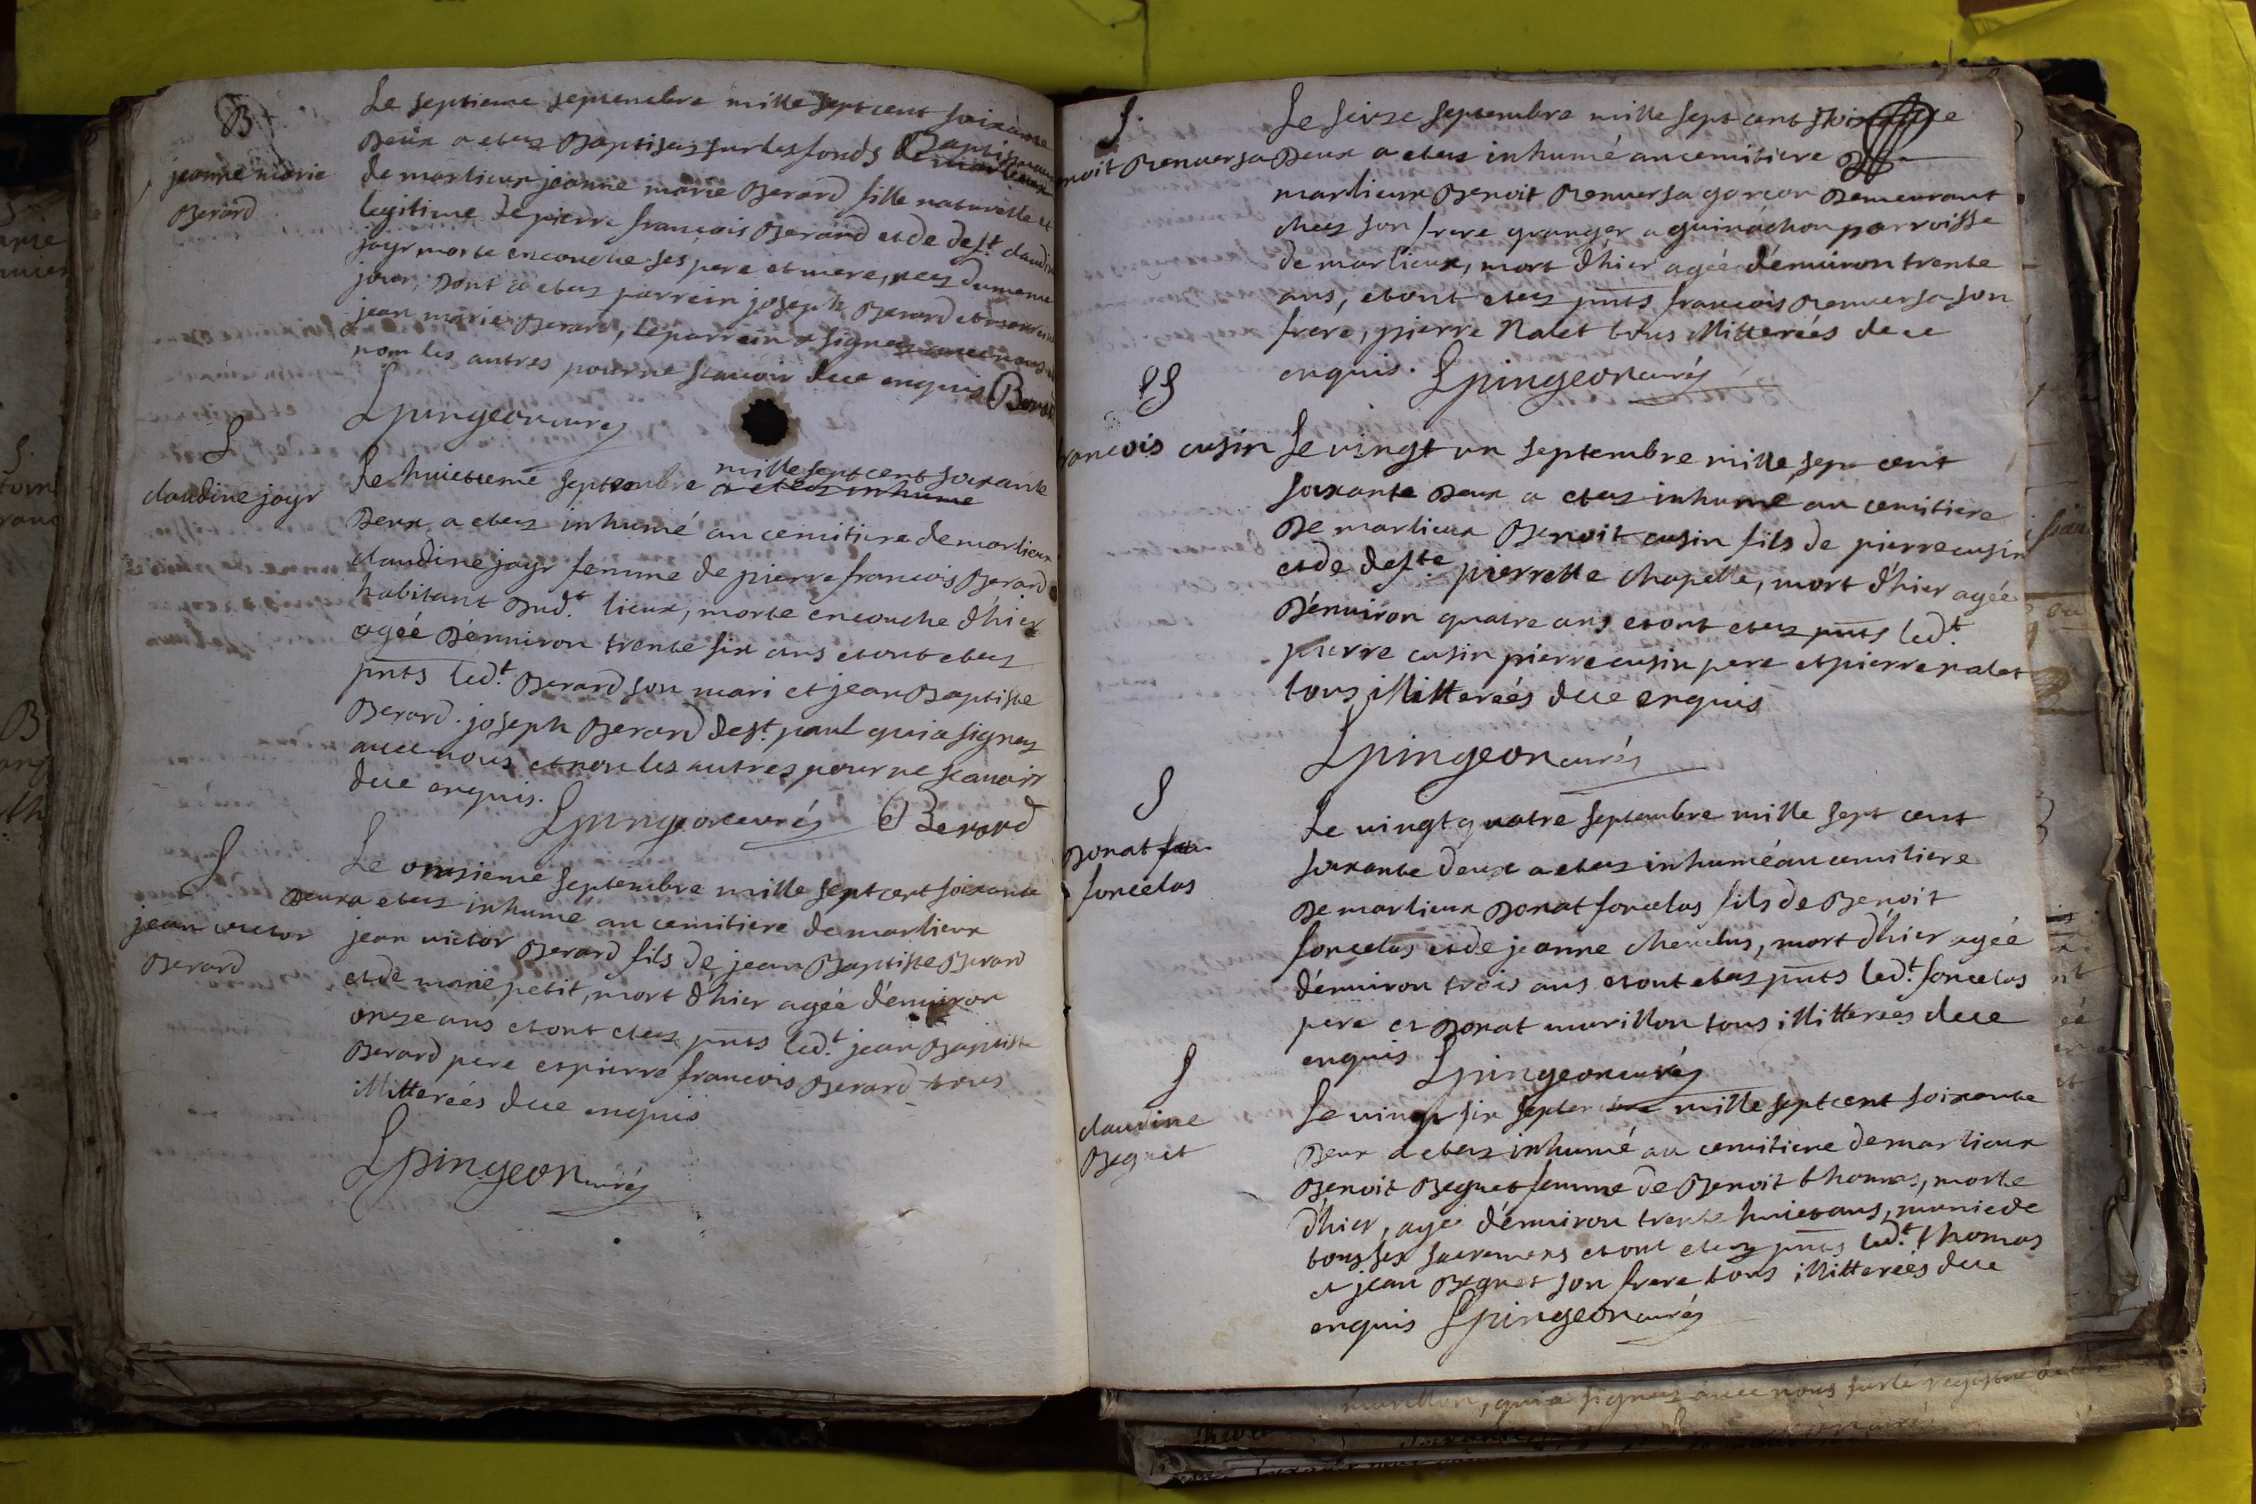 B
jeanne marie
Berard
Le septieme septembre mille sept cent soixante
Deux a etez Baptisez sur les fonds Baptismaux
de marlieux jeanne marie Berard fille naturelle et
legitime de pierre françois Berard et de deft. claudine
jayr morte en couche ses pere et mere, nez du meme
jour, Dont a etez parrein joseph Berard et marreine
jean marie Berard, le parrein a signez avec nous et
non les autres pour ne scavoir de ce enquis Berard
Epingeon curéz
S
claudine jayr
Le huictieme septembre mille sept cent soixante
a etez inhumé
Deux a etez inhumé au cemitiere de marlieux
claudine jayr femme de pierre francois Berard
habitant Dud.t lieux, morte en couche d'hier
ageé D'environ trente six ans et ont etez
pnts led.t Berard son mari et jean Baptiste
Berard. joseph Berard de st. paul qui a signez
avec nous et non les autres pour ne scavoir
de ce enquis.
Epingeon curéz Berard
S
jean victor
Berard
Le onzieme septembre mille sept cent soixante
Deux a etez inhumé au cemitiere de marlieux
jean victor Berard fils de jean Baptiste Berard
et de marie petit, mort d'hier ageé d'environ
onze ans et ont etez pnts led.t jean Baptiste
Berard pere et pierre francois Berard tous
illitereés de ce enquis
Epingeon curéz
S.
noit Renversa
Le seize septembre mille sept cent soixante
Deux a etez inhumé au cemitiere De
marlieux Benoit Renversa garcon Demeurant
chez son frere granger a guinachon parroisse
de marlieux, mort d'hier ageé d'environ trente
ans, et ont etez pnts francois Renversa son
frere, pierre Nalet tous illitereés de ce
enquis. Epingeon curéz
S
rancois cusin
Le vingt un septembre mille sept cent
soixante Deux a etez inhumé au cemitiere
De marlieux Benoit cusin fils de pierre cusin
et de deft.e pierrette chapelle, mort d'hier ageé
D'environ quatre ans et ont etez pnts led.t
pierre cusin pierre cusin pere et pierre nalet
tous illitereés de ce enquis
Epingeon curéz
S
Donat
forcelas
Le vingt quatre septembre mille sept cent
soixante deux a etez inhumé au cemitiere
De marlieux Donat forcelas fils de Benoit
forcelas et de jeanne chevelus, mort d'hier ageé
d'environ trois ans et ont etez pnts led.t forcelas
pere et Donat murillon tous illitereés de ce
enquis Epingeon curéz
S
claudine
Beguet
Le vingt six septembre mille sept cent soixante
Deux a etez inhumé au cemitiere de marlieux
Benoit Beguet femme de Benoit thomas, morte
d'hier, ageé d'environ trente huict ans, munie de
tous ses sacremens et ont etez pnts led.t thomas
et jean Beguet son frere tous illitereés de ce
enquis Epingeon curéz
murillon, qui a signez avec nous sur le registre